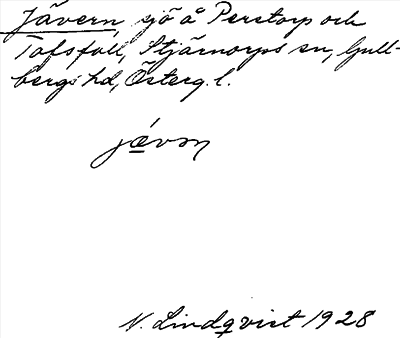 Jävern, sjö å Perstorp och
Tolsfall, Stjärnorps sn, Gull-
bergs hd, Österg. l.
jǽvəɳ
N. Lindqvist 1928